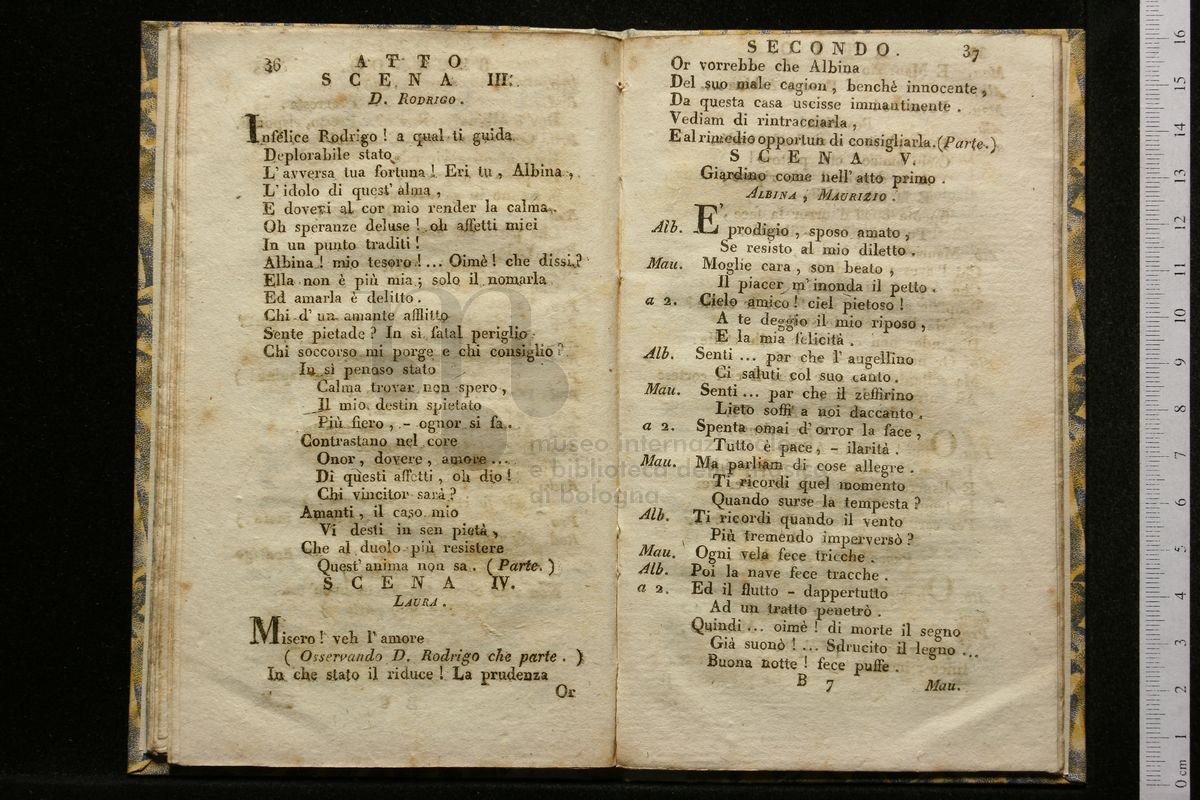 36 ATTO
SCENA III.
D. RODRIGO.
Infelice Rodrigo! a qual ti guida
Deplorabile stato
L'avversa tua fortuna! Eri tu, Albina,
L'idolo di quest'alma,
E dovevi al cor mio render la calma.
Oh speranze deluse! oh affetti miei
In un punto traditi!
Albina! mio tesoro!... Oimè! che dissi?
Ella non è più mia; solo il nomarla
Ed amarla è delitto.
Chi d'un amante afflitto
Sente pietade? In sì fatal periglio
Chi soccorso mi porge e chi consiglio?
In sì penoso stato
Calma trovar non spero,
Il mio destin spietato
Più fiero, - ognor si fa.
Contrastano nel core
Onor, dovere, amore...
Di questi affetti, oh dio!
Chi vincitor sarà?
Amanti, il caso mio
Vi desti in sen pietà,
Che al duolo più resistere
Quest'anima non sa. (Parte.)
SCENA IV.
LAURA.
Misero! veh l'amore
(Osservando D. Rodrigo che parte.)
In che stato il riduce! La prudenza
Or
SECONDO. 37
Or vorrebbe che Albina
Del suo male cagion, benchè innocente,
Da questa casa uscisse immantinente.
Vediam di rintracciarla,
E al rimedio opportun di consigliarla. (Parte.)
SCENA V.
Giardino come nell'atto primo.
ALBINA, MAURIZIO.
Alb. E' prodigio, sposo amato,
Se resisto al mio diletto.
Mau. Moglie cara, son beato,
Il piacer m'inonda il petto.
a 2. Cielo amico! ciel pietoso!
A te deggio il mio riposo,
E la mia felicità.
Alb. Senti... par che l'augellino
Ci saluti col suo canto.
Mau. Senti... par che il zeffirino
Lieto soffi a noi daccanto.
a 2. Spenta omai d'orror la face,
Tutto è pace, - ilarità.
Mau. Ma parliam di cose allegre.
Ti ricordi quel momento
Quando surse la tempesta?
Alb. Ti ricordi quando il vento
Più tremendo imperversò?
Mau. Ogni vela fece tricche.
Alb. Poi la nave fece tracche.
a 2. Ed il flutto - dappertutto
Ad un tratto penetrò.
Quindi... oimè! di morte il segno
Già suonò!... Sdrucito il legno...
Buona notte! fece puffe.
B 7 Mau.
museo internazionale
e biblioteca della musica
di bologna
0 cm 1 2 3 4 5 6 7 8 9 10 11 12 13 14 15 16